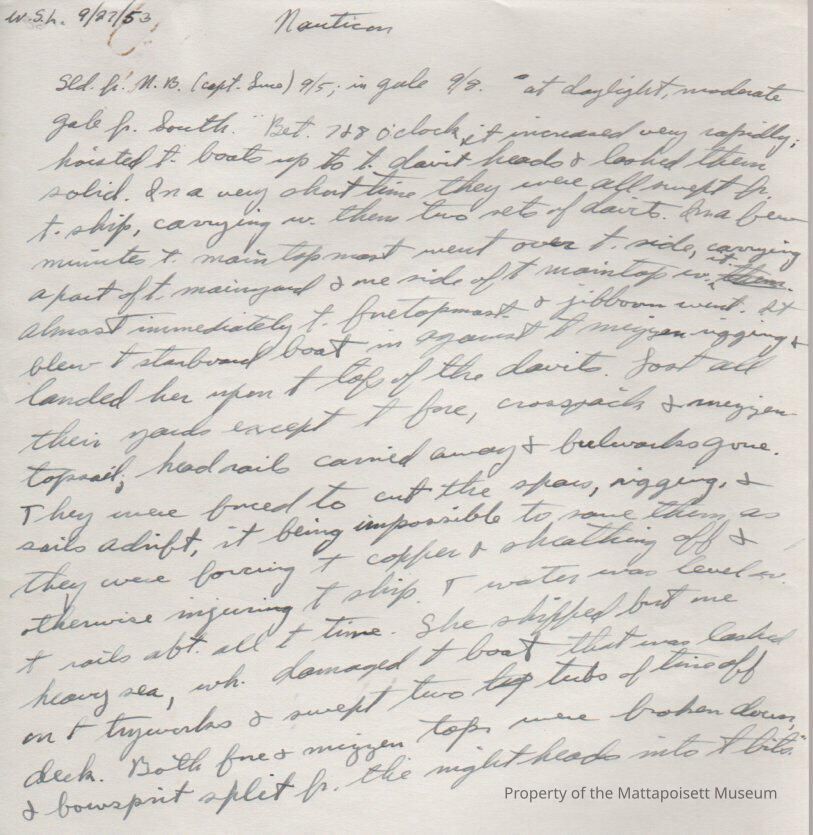 W.S.L. 9/27/53
Nauticon
Sld. fr. N.B. (Capt. Luce) 9/5; in gale 9/8. "at daylight, moderate
gale fr. South. Bet. 7 & 8 o'clock, it increased very rapidly;
hoisted t. boats up to t. davit heads & lashed them
solid. In a very short time they were all swept fr.
t. ship, carrying w. them two sets of davits. In a few
minutes t. main topmast went over t. side, carrying
a part of t. mainyard & one side of t maintop w. it. them.
almost immediately t. foretopmast & jibboom went. It
blew t starboard boat in against t mizzen rigging &
landed her upon t tops of the davits. Lost all
their yards except t fore, crossjack & mizzen
topsail; head rails carried away & bulwarks gone.
They were forced to cut the spars, rigging, &
sails adrift, it being impossible to save them as
they were forcing t copper & sheathing off &
otherwise injuring t ship. T water was level w.
t rails abt. all t time. She shipped but one
heavy sea, wh. damaged t boat that was lashed
on t tryworks & swept two tubs of line off
deck. Both fore & mizzen tops were broken down,
& bowsprit split fr. the night heads into t bits."
Property of the Mattapoisett Museum